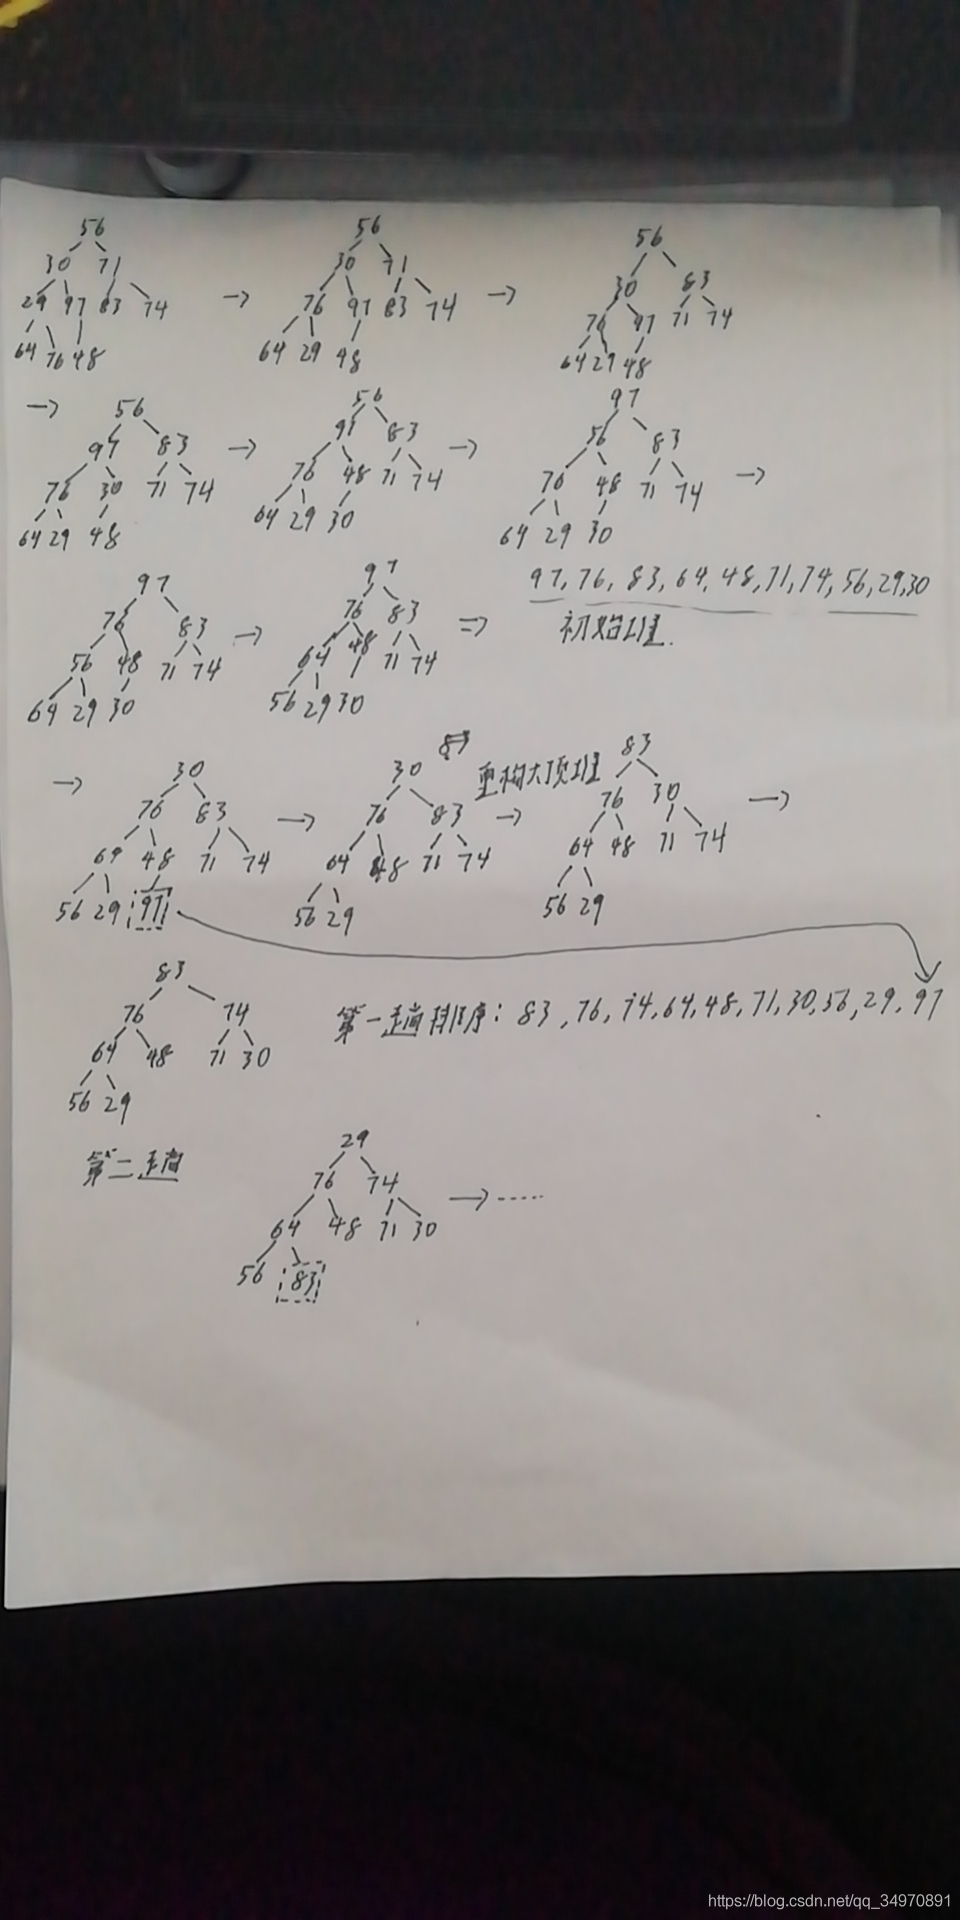 56 56 56
30 71 30 71 30 83
29 97 83 74 → 76 97 83 74 → 76 97 71 74
64 76 48 64 29 48 64 29 48
→ 56 56 97
97 83 → 97 83 → 56 83 →
76 30 71 74 76 48 71 74 76 48 71 74
64 29 48 64 29 30 64 29 30
97 97 97, 76, 83, 64, 48, 71, 74, 56, 29, 30
76 83 → 76 83 ⇒ 初始堆.
56 48 71 74 64 48 71 74
64 29 30 56 29 30
→ 30 30 83 重构大顶堆 83
76 83 → 76 83 → 76 30 →
64 48 71 74 64 48 71 74 64 48 71 74
56 29 97 56 29 56 29
83
76 74 第一趟排序: 83, 76, 74, 64, 48, 71, 30, 56, 29, 97
64 48 71 30
56 29
第二趟 29
76 74 → ......
64 48 71 30
56 83
https://blog.csdn.net/qq_34970891